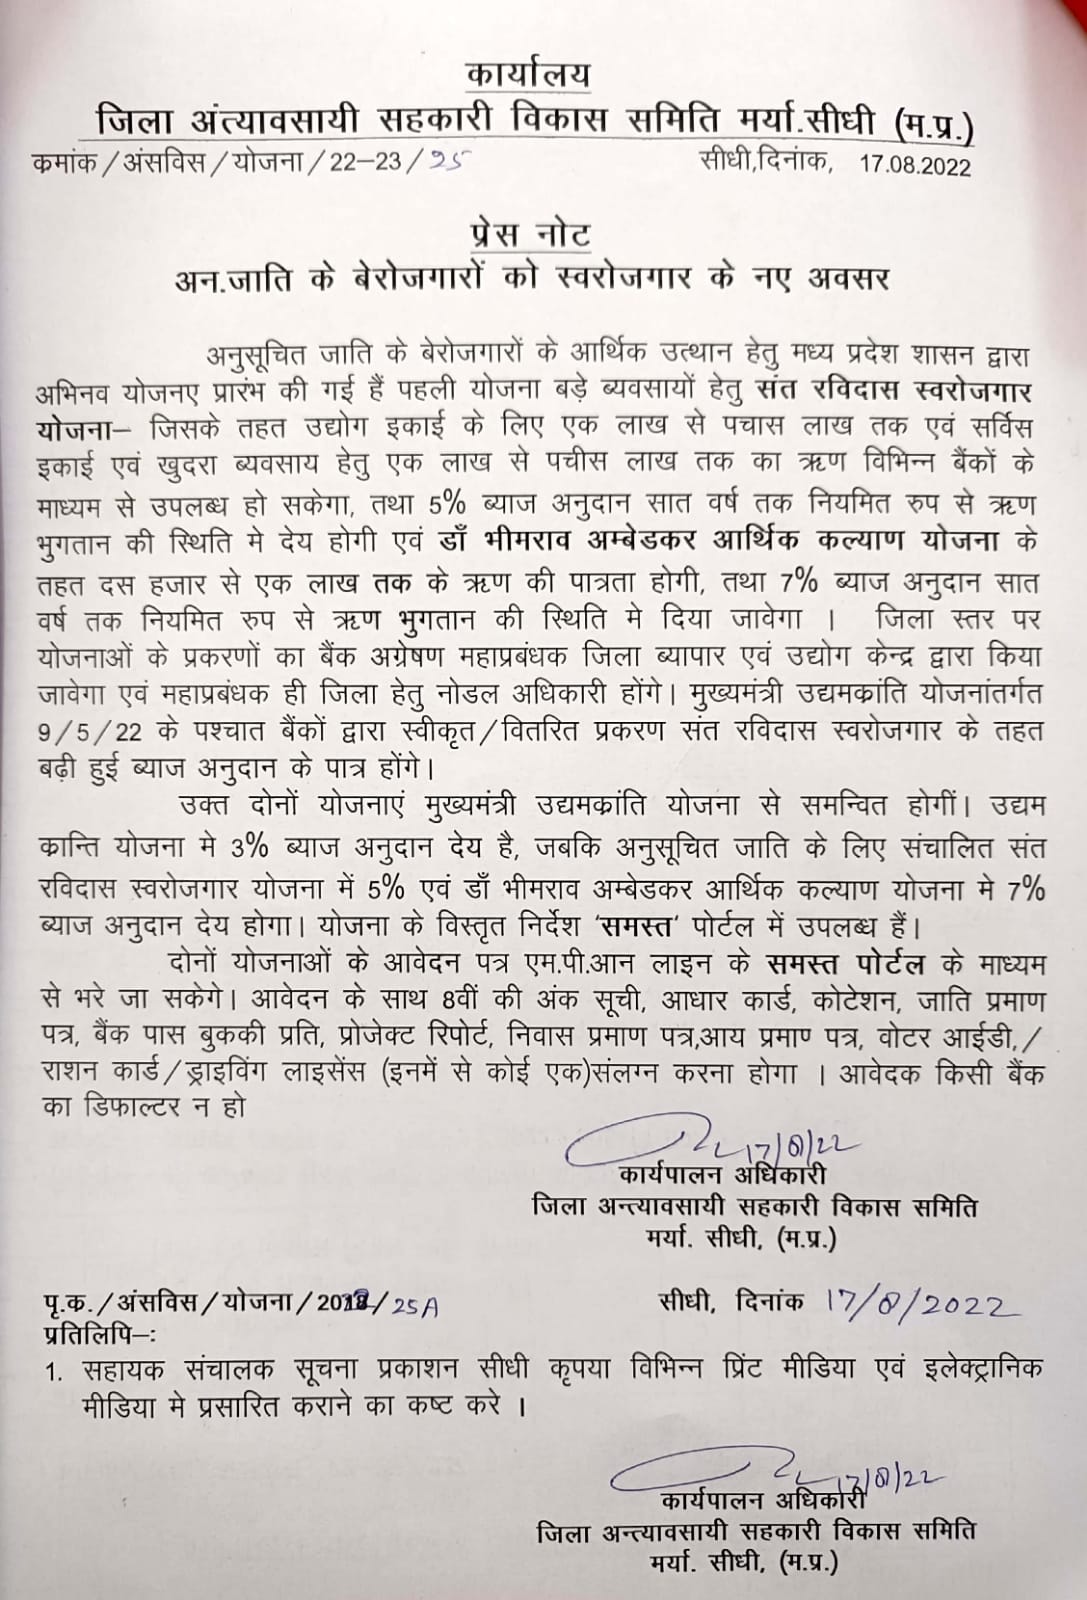 कार्यालय
जिला अंत्यावसायी सहकारी विकास समिति मर्या.सीधी (म.प्र.)
कमांक/अंसविस/योजना/22–23/25 सीधी,दिनांक, 17.08.2022
प्रेस नोट
अन.जाति के बेरोजगारों को स्वरोजगार के नए अवसर
अनुसूचित जाति के बेरोजगारों के आर्थिक उत्थान हेतु मध्य प्रदेश शासन द्वारा
अभिनव योजनए प्रारंभ की गई हैं पहली योजना बड़े ब्यवसायों हेतु संत रविदास स्वरोजगार
योजना– जिसके तहत उद्योग इकाई के लिए एक लाख से पचास लाख तक एवं सर्विस
इकाई एवं खुदरा ब्यवसाय हेतु एक लाख से पचीस लाख तक का ऋण विभिन्न बैंकों के
माध्यम से उपलब्ध हो सकेगा, तथा 5% ब्याज अनुदान सात वर्ष तक नियमित रुप से ऋण
भुगतान की स्थिति मे देय होगी एवं डॉ भीमराव अम्बेडकर आर्थिक कल्याण योजना के
तहत दस हजार से एक लाख तक के ऋण की पात्रता होगी, तथा 7% ब्याज अनुदान सात
वर्ष तक नियमित रुप से ऋण भुगतान की स्थिति मे दिया जावेगा । जिला स्तर पर
योजनाओं के प्रकरणों का बैंक अग्रेषण महाप्रबंधक जिला ब्यापार एवं उद्योग केन्द्र द्वारा किया
जावेगा एवं महाप्रबंधक ही जिला हेतु नोडल अधिकारी होंगे। मुख्यमंत्री उद्यमक्रांति योजनांतर्गत
9/5/22 के पश्चात बैंकों द्वारा स्वीकृत/वितरित प्रकरण संत रविदास स्वरोजगार के तहत
बढ़ी हुई ब्याज अनुदान के पात्र होंगे।
उक्त दोनों योजनाएं मुख्यमंत्री उद्यमक्रांति योजना से समन्वित होगीं। उद्यम
क्रान्ति योजना मे 3% ब्याज अनुदान देय है, जबकि अनुसूचित जाति के लिए संचालित संत
रविदास स्वरोजगार योजना में 5% एवं डॉ भीमराव अम्बेडकर आर्थिक कल्याण योजना मे 7%
ब्याज अनुदान देय होगा। योजना के विस्तृत निर्देश 'समस्त' पोर्टल में उपलब्ध हैं।
दोनों योजनाओं के आवेदन पत्र एम.पी.आन लाइन के समस्त पोर्टल के माध्यम
से भरे जा सकेगे। आवेदन के साथ 8वीं की अंक सूची, आधार कार्ड, कोटेशन, जाति प्रमाण
पत्र, बैंक पास बुककी प्रति, प्रोजेक्ट रिपोर्ट, निवास प्रमाण पत्र,आय प्रमाण पत्र, वोटर आईडी,/
राशन कार्ड/ड्राइविंग लाइसेंस (इनमें से कोई एक)संलग्न करना होगा । आवेदक किसी बैंक
का डिफाल्टर न हो
17/8/22
कार्यपालन अधिकारी
जिला अन्त्यावसायी सहकारी विकास समिति
मर्या. सीधी, (म.प्र.)
पृ.क./अंसविस/योजना/2022/25A सीधी, दिनांक 17/8/2022
प्रतिलिपि–:
1. सहायक संचालक सूचना प्रकाशन सीधी कृपया विभिन्न प्रिंट मीडिया एवं इलेक्ट्रानिक
मीडिया मे प्रसारित कराने का कष्ट करे ।
17/8/22
कार्यपालन अधिकारी
जिला अन्त्यावसायी सहकारी विकास समिति
मर्या. सीधी, (म.प्र.)